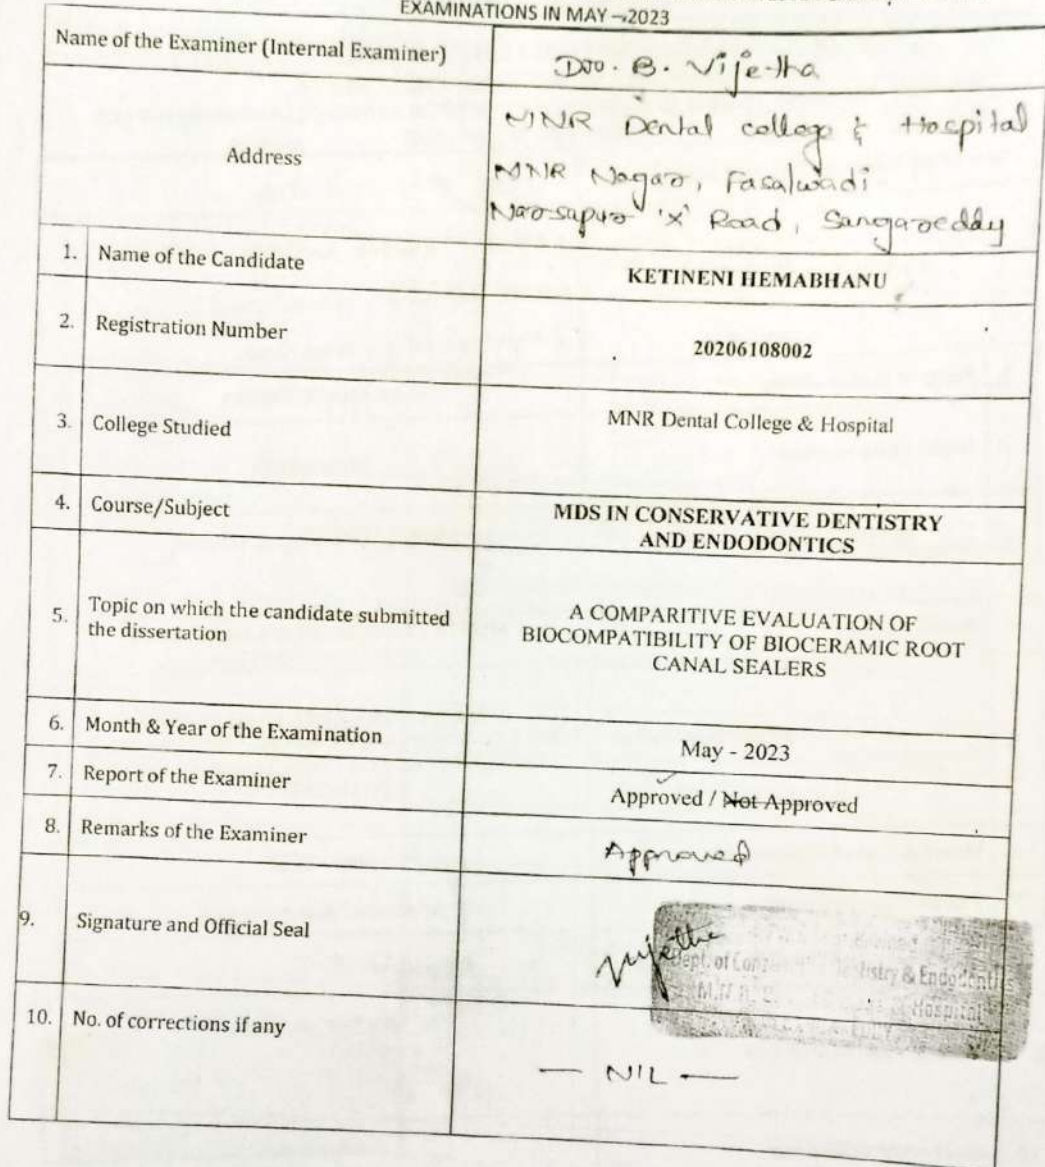 EXAMINATIONS IN MAY - 2023
Name of the Examiner (Internal Examiner)
Dr. B. Vijetha
Address
MNR Dental college & Hospital
MNR Nagar, Fasalwadi
Narsapur 'X' Road, Sangareddy
1. Name of the Candidate
KETINENI HEMABHANU
2. Registration Number
20206108002
3. College Studied
MNR Dental College & Hospital
4. Course/Subject
MDS IN CONSERVATIVE DENTISTRY
AND ENDODONTICS
5. Topic on which the candidate submitted
the dissertation
A COMPARITIVE EVALUATION OF
BIOCOMPATIBILITY OF BIOCERAMIC ROOT
CANAL SEALERS
6. Month & Year of the Examination
May - 2023
7. Report of the Examiner
Approved / Not Approved
8. Remarks of the Examiner
Approved
9. Signature and Official Seal
Vijetha
Dept. of & Endodontics
Hospital
10. No. of corrections if any
— NIL —